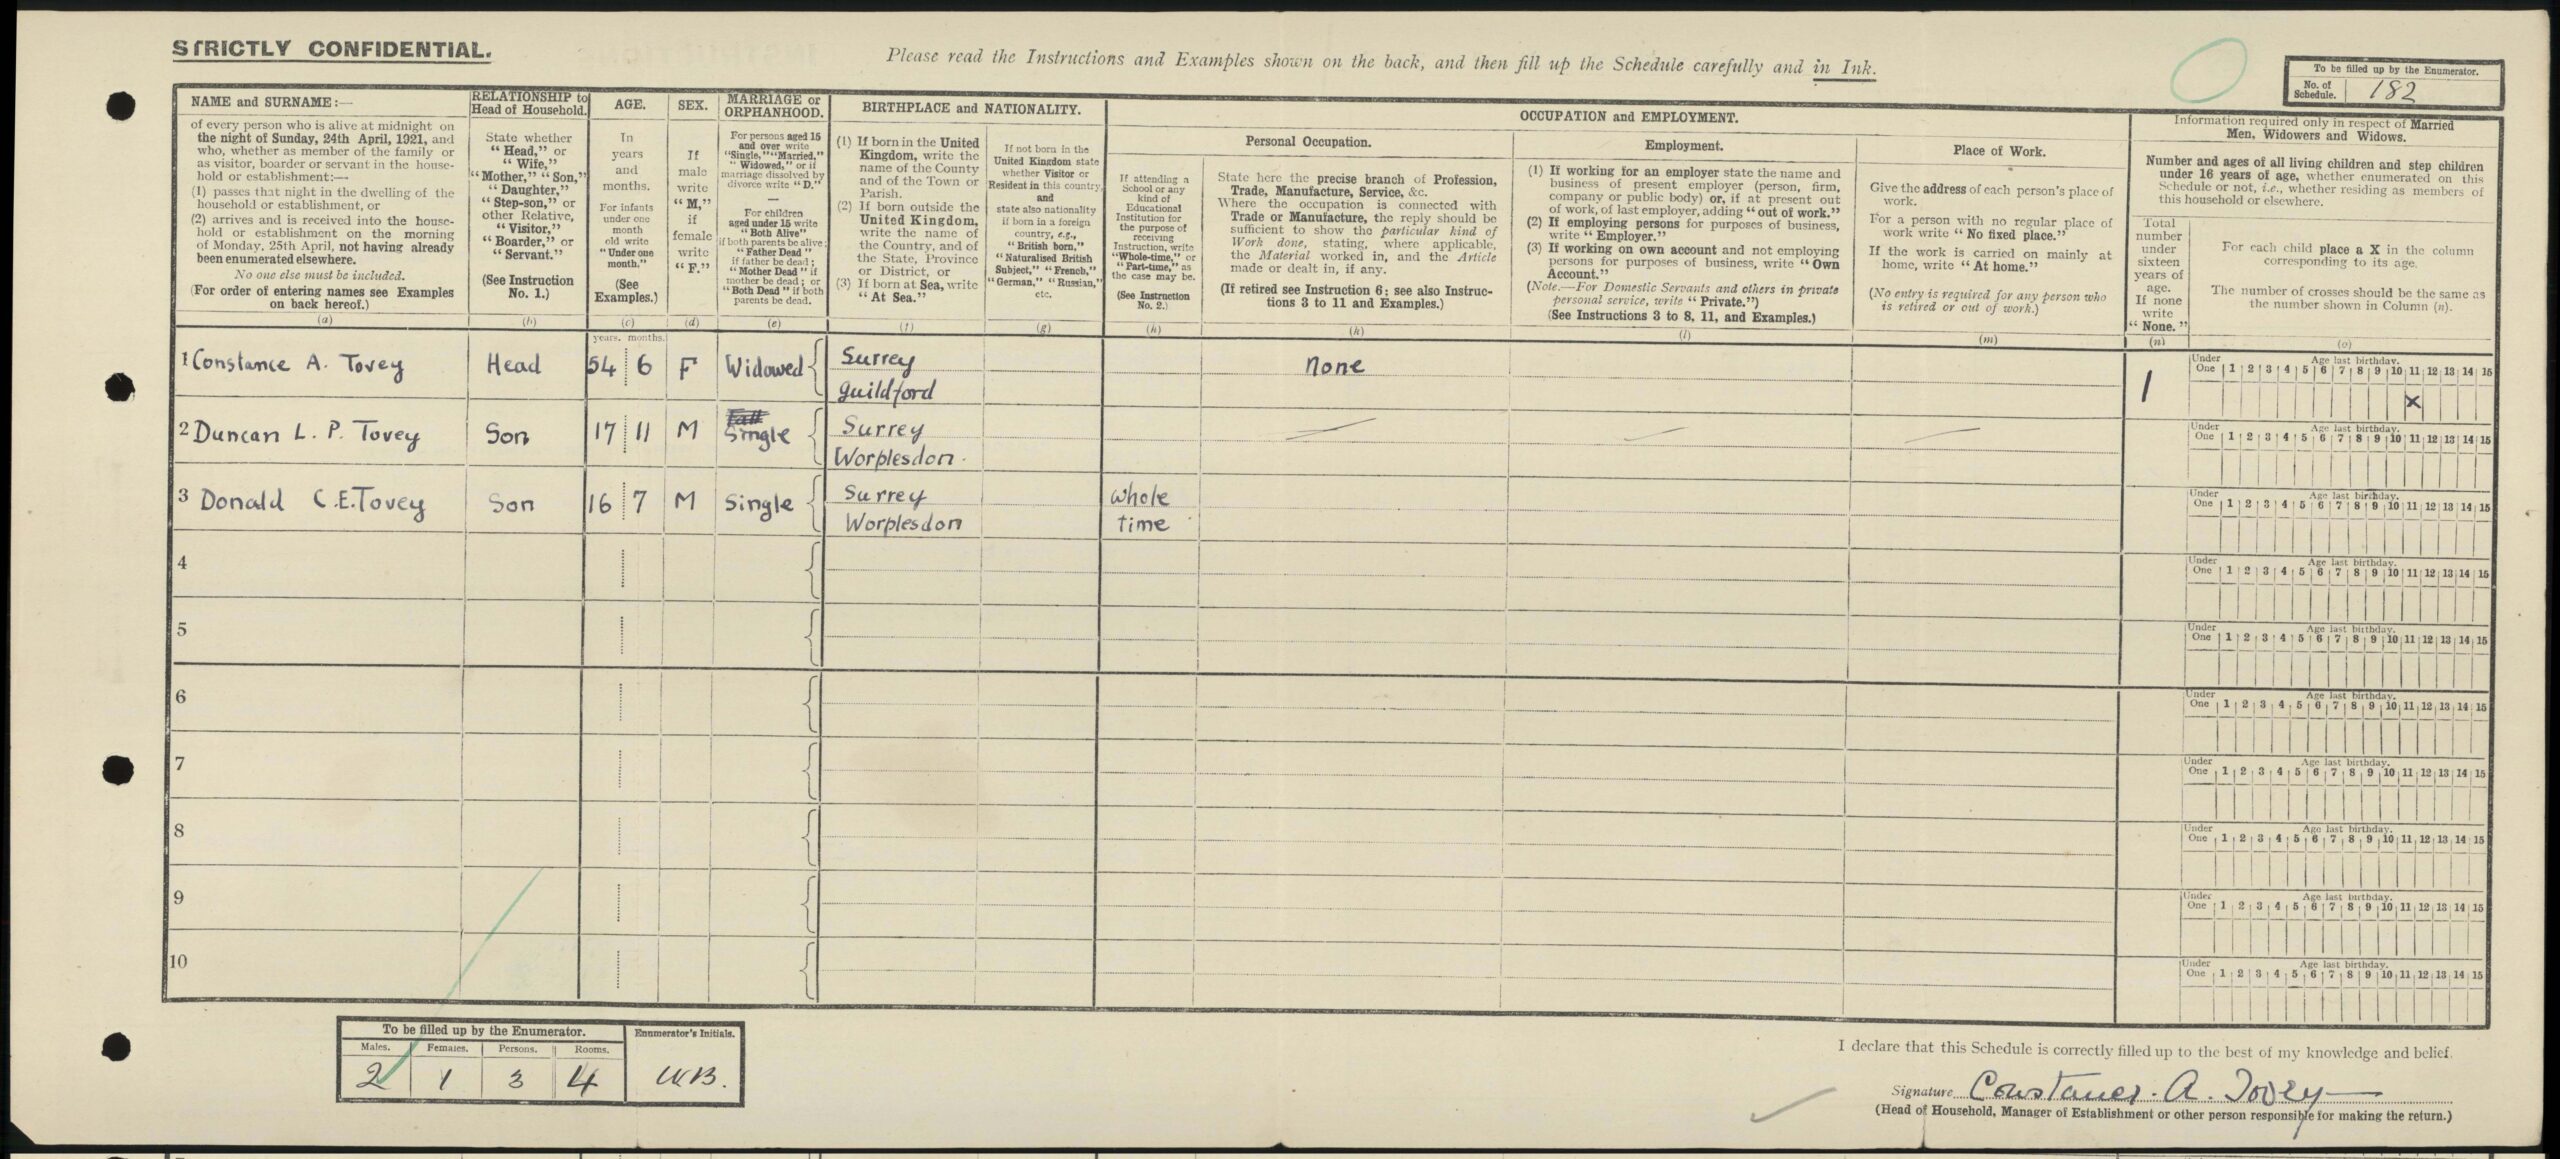 STRICTLY CONFIDENTIAL.
Please read the Instructions and Examples shown on the back, and then fill up the Schedule carefully and in Ink.
To be filled up by the Enumerator.
No. of Schedule. 182
NAME and SURNAME:—
of every person who is alive at midnight on
the night of Sunday, 24th April, 1921, and
who, whether as member of the family or
as visitor, boarder or servant in the house-
hold or establishment:—
(1) passes that night in the dwelling of the
household or establishment, or
(2) arrives and is received into the house-
hold or establishment on the morning
of Monday, 25th April, not having already
been enumerated elsewhere.
No one else must be included.
(For order of entering names see Examples
on back hereof.)
(a)
RELATIONSHIP to
Head of Household.
State whether
"Head," or
"Wife,"
"Mother," "Son,"
"Daughter,"
"Step-son," or
other Relative,
"Visitor,"
"Boarder," or
"Servant."
(See Instruction
No. 1.)
(b)
AGE.
In
years
and
months.
For infants
under one
month
old write
"Under one
month."
(See
Examples.)
(c)
SEX.
If
male
write
"M,"
if
female
write
"F."
(d)
MARRIAGE or
ORPHANHOOD.
For persons aged 15
and over write
"Single," "Married,"
"Widowed," or if
marriage dissolved by
divorce write "D."
—
For children
aged under 15 write
"Both Alive"
if both parents be alive;
"Father Dead"
if father be dead;
"Mother Dead" if
mother be dead; or
"Both Dead" if both
parents be dead.
(e)
BIRTHPLACE and NATIONALITY.
(1) If born in the United
Kingdom, write the
name of the County
and of the Town or
Parish.
(2) If born outside the
United Kingdom,
write the name of
the Country, and of
the State, Province
or District, or
(3) If born at Sea, write
"At Sea."
(f)
If not born in the
United Kingdom state
whether Visitor or
Resident in this country,
and
state also nationality
if born in a foreign
country, e.g.,
"British born,"
"Naturalised British
Subject," "French,"
"German," "Russian,"
etc.
(g)
OCCUPATION and EMPLOYMENT.
If attending a
School or any
kind of
Educational
Institution for
the purpose of
receiving
Instruction, write
"Whole-time," or
"Part-time," as
the case may be.
(See Instruction
No. 2.)
(h)
Personal Occupation.
State here the precise branch of Profession,
Trade, Manufacture, Service, &c.
Where the occupation is connected with
Trade or Manufacture, the reply should be
sufficient to show the particular kind of
Work done, stating, where applicable,
the Material worked in, and the Article
made or dealt in, if any.
(If retired see Instruction 6; see also Instruc-
tions 3 to 11 and Examples.)
(k)
Employment.
(1) If working for an employer state the name and
business of present employer (person, firm,
company or public body) or, if at present out
of work, of last employer, adding "out of work."
(2) If employing persons for purposes of business,
write "Employer."
(3) If working on own account and not employing
persons for purposes of business, write "Own
Account."
(Note.—For Domestic Servants and others in private
personal service, write "Private.")
(See Instructions 3 to 8, 11, and Examples.)
(l)
Place of Work.
Give the address of each person's place of
work.
For a person with no regular place of
work write "No fixed place."
If the work is carried on mainly at
home, write "At home."
(No entry is required for any person who
is retired or out of work.)
(m)
Information required only in respect of Married
Men, Widowers and Widows.
Number and ages of all living children and step children
under 16 years of age, whether enumerated on this
Schedule or not, i.e., whether residing as members of
this household or elsewhere.
Total
number
under
sixteen
years of
age.
If none
write
"None."
(n)
For each child place a X in the column
corresponding to its age.
The number of crosses should be the same as
the number shown in Column (n).
(o)
years. months.
1 Constance A. Tovey Head 54 6 F Widowed Surrey none 1
Guildford
Under One Age last birthday. 1 2 3 4 5 6 7 8 9 10 11 12 13 14 15
X
2 Duncan L. P. Tovey Son 17 11 M Single Surrey
Worplesdon.
Under One Age last birthday. 1 2 3 4 5 6 7 8 9 10 11 12 13 14 15
3 Donald C.E. Tovey Son 16 7 M Single Surrey whole
Worplesdon time
Under One Age last birthday. 1 2 3 4 5 6 7 8 9 10 11 12 13 14 15
4
Under One Age last birthday. 1 2 3 4 5 6 7 8 9 10 11 12 13 14 15
5
Under One Age last birthday. 1 2 3 4 5 6 7 8 9 10 11 12 13 14 15
6
Under One Age last birthday. 1 2 3 4 5 6 7 8 9 10 11 12 13 14 15
7
Under One Age last birthday. 1 2 3 4 5 6 7 8 9 10 11 12 13 14 15
8
Under One Age last birthday. 1 2 3 4 5 6 7 8 9 10 11 12 13 14 15
9
Under One Age last birthday. 1 2 3 4 5 6 7 8 9 10 11 12 13 14 15
10
Under One Age last birthday. 1 2 3 4 5 6 7 8 9 10 11 12 13 14 15
To be filled up by the Enumerator.
Enumerator's Initials.
Males. Females. Persons. Rooms.
2 1 3 4 W.B.
I declare that this Schedule is correctly filled up to the best of my knowledge and belief.
Signature Constance. A. Tovey
(Head of Household, Manager of Establishment or other person responsible for making the return.)